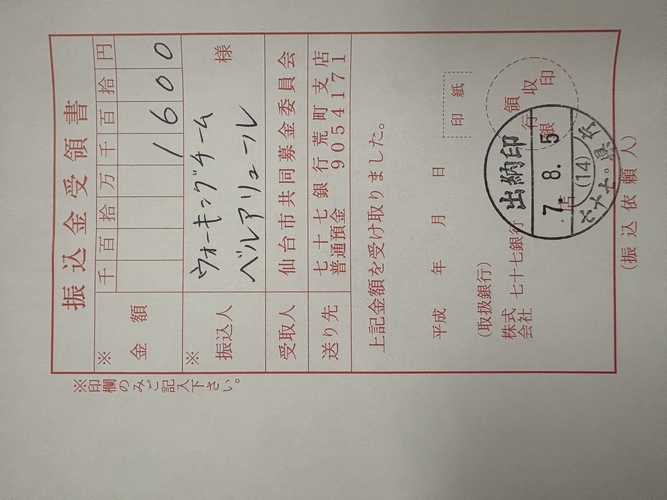 振込金受領書
※
金額
千百拾万千百拾円
1600
※
振込人
ウォーキングチーム
ベルアリュール
様
受取人
仙台市共同募金委員会
送り先
七十七銀行荒町支店
普通預金 9054171
上記金額を受け取りました。
平成 年 月 日
(取扱銀行)
株式会社 七十七銀行
印紙
領収印
出納印
7. 8. 5
(14)
(振込依頼人)
※印欄のみご記入下さい。